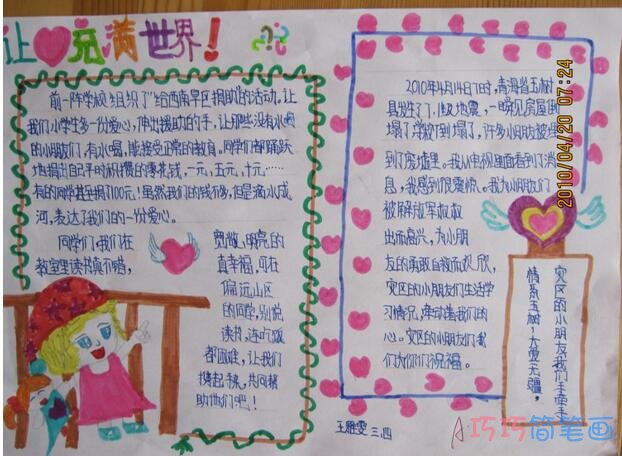 让充满世界!
前一阵学校组织了"给西南旱区捐助"的活动。让
我们小学生多一份爱心,伸出援助的手,让那些没有水喝
的小朋友们,有水喝,能接受正常的教育。同学们都踊跃
地捐出自己平时积攒的零花钱,一元,五元,十元……
有的同学甚至捐了100元!虽然我们的钱不多,但是滴水成
河,表达了我们的一份爱心。
同学们,我们在
教室里读书真不错,
宽敞、明亮的
真幸福,可在
偏远山区
的同学,别说
读书,连吃饭
都困难,让我们
携起手来,共同帮
助他们吧!
2010年4月14日7时,青海省玉树
县发生了7.1级地震,一瞬间房屋倒
塌了学校到塌了,许多小朋友被埋
到了废墟里。我从电视里面看到了消
息,我感到很震惊。我为小朋友们
被解放军叔叔
出而高兴,为小朋
友的勇敢自救而欢欣,
灾区的小朋友们生活学
习情况,牵动着我们的
心。灾区的小朋友们我
们为你们祝福。
灾区的小朋友我们手牵手
情系玉树!大爱无疆,
王雅雯 三、四
2010/04/20 07:24
巧巧简笔画